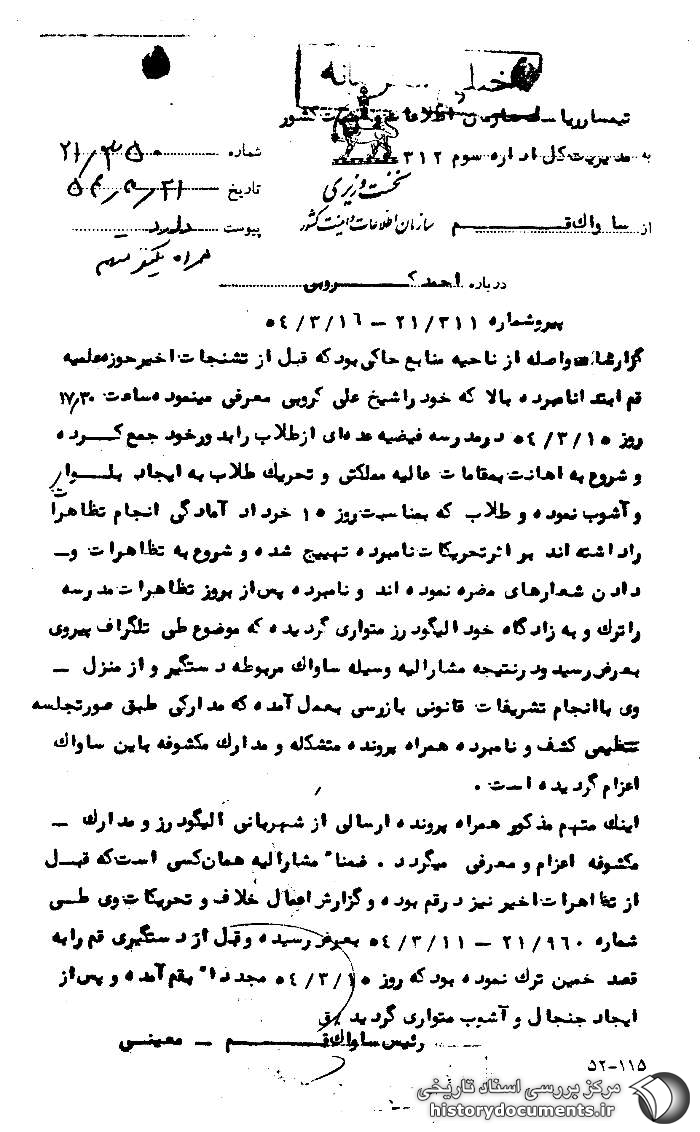 خیلی محرمانه
تیمسار ریاست سازمان اطلاعات و امنیت کشور
به مدیریت کل اداره سوم ۳۱۲
شماره ۲۱/۳۵۰
نخست وزیری
تاریخ
سازمان اطلاعات و امنیت کشور
از ساواک قم
پیوست دارد
همراه یکنفر متهم
درباره احمد کروبی
پیرو شماره ۲۱/۳۱۱ – ۵۴/۳/۱۶
گزارشات واصله از ناحیه منابع حاکی بود که قبل از تشنجات اخیر حوزه علمیه
قم ابتدا نامبرده بالا که خود را شیخ علی کروبی معرفی مینمود ه ساعت ۱۷٫۳۰
روز ۵۴/۳/۱۵ در مدرسه فیضیه عده‌ای از طلاب را بدور خود جمع کرده
و شروع به اهانت بمقامات عالیه مملکتی و تحریک طلاب به ایجاد بلوا
و آشوب نموده و طلاب که بمناسبت روز ۱۵ خرداد آمادگی انجام تظاهرات
را داشته اند بر اثر تحریکات نامبرده تهییج شده و شروع به تظاهرات و –
دادن شعارهای مضره نموده اند و نامبرده پس از بروز تظاهرات مدرسه
را ترک و به زادگاه خود الیگودرز متواری گردیده که موضوع طی تلگراف پیروی
بعرض رسید و در نتیجه مشارالیه وسیله ساواک مربوطه دستگیر و از منزل –
وی با انجام تشریفات قانونی بازرسی بعمل آمده که مدارکی طبق صورتجلسه
تنظیمی کشف و نامبرده همراه پرونده متشکله و مدارک مکشوفه باین ساواک
اعزام گردیده است .
اینک متهم مذکور همراه پرونده ارسالی از شهربانی الیگودرز و مدارک –
مکشوفه اعزام و معرفی میگردد . ضمنا" مشارالیه همان کسی است که قبل
از تظاهرات اخیر نیز در قم بوده و گزارش اعمال خلاف و تحریکات وی طی
شماره ۲۱/۹۶۰ – ۵۴/۳/۱۱ بعرض رسیده و قبل از دستگیری قم را به
قصد خمین ترک نموده بود که روز ۵۴/۳/۱۵ مجددا" بقم آمده و پس از
ایجاد جنجال و آشوب متواری گردید
رئیس ساواک قم – معینی
۵۲-۱۱۵
مرکز بررسی اسناد تاریخی
historydocuments.ir